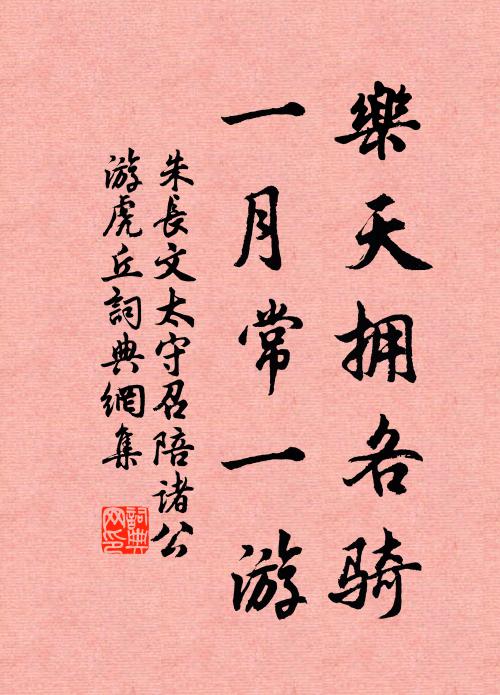 樂天拥各骑
一月常一游
朱長文太守召陪诸公
游虎丘詞典網集
詞典
网印